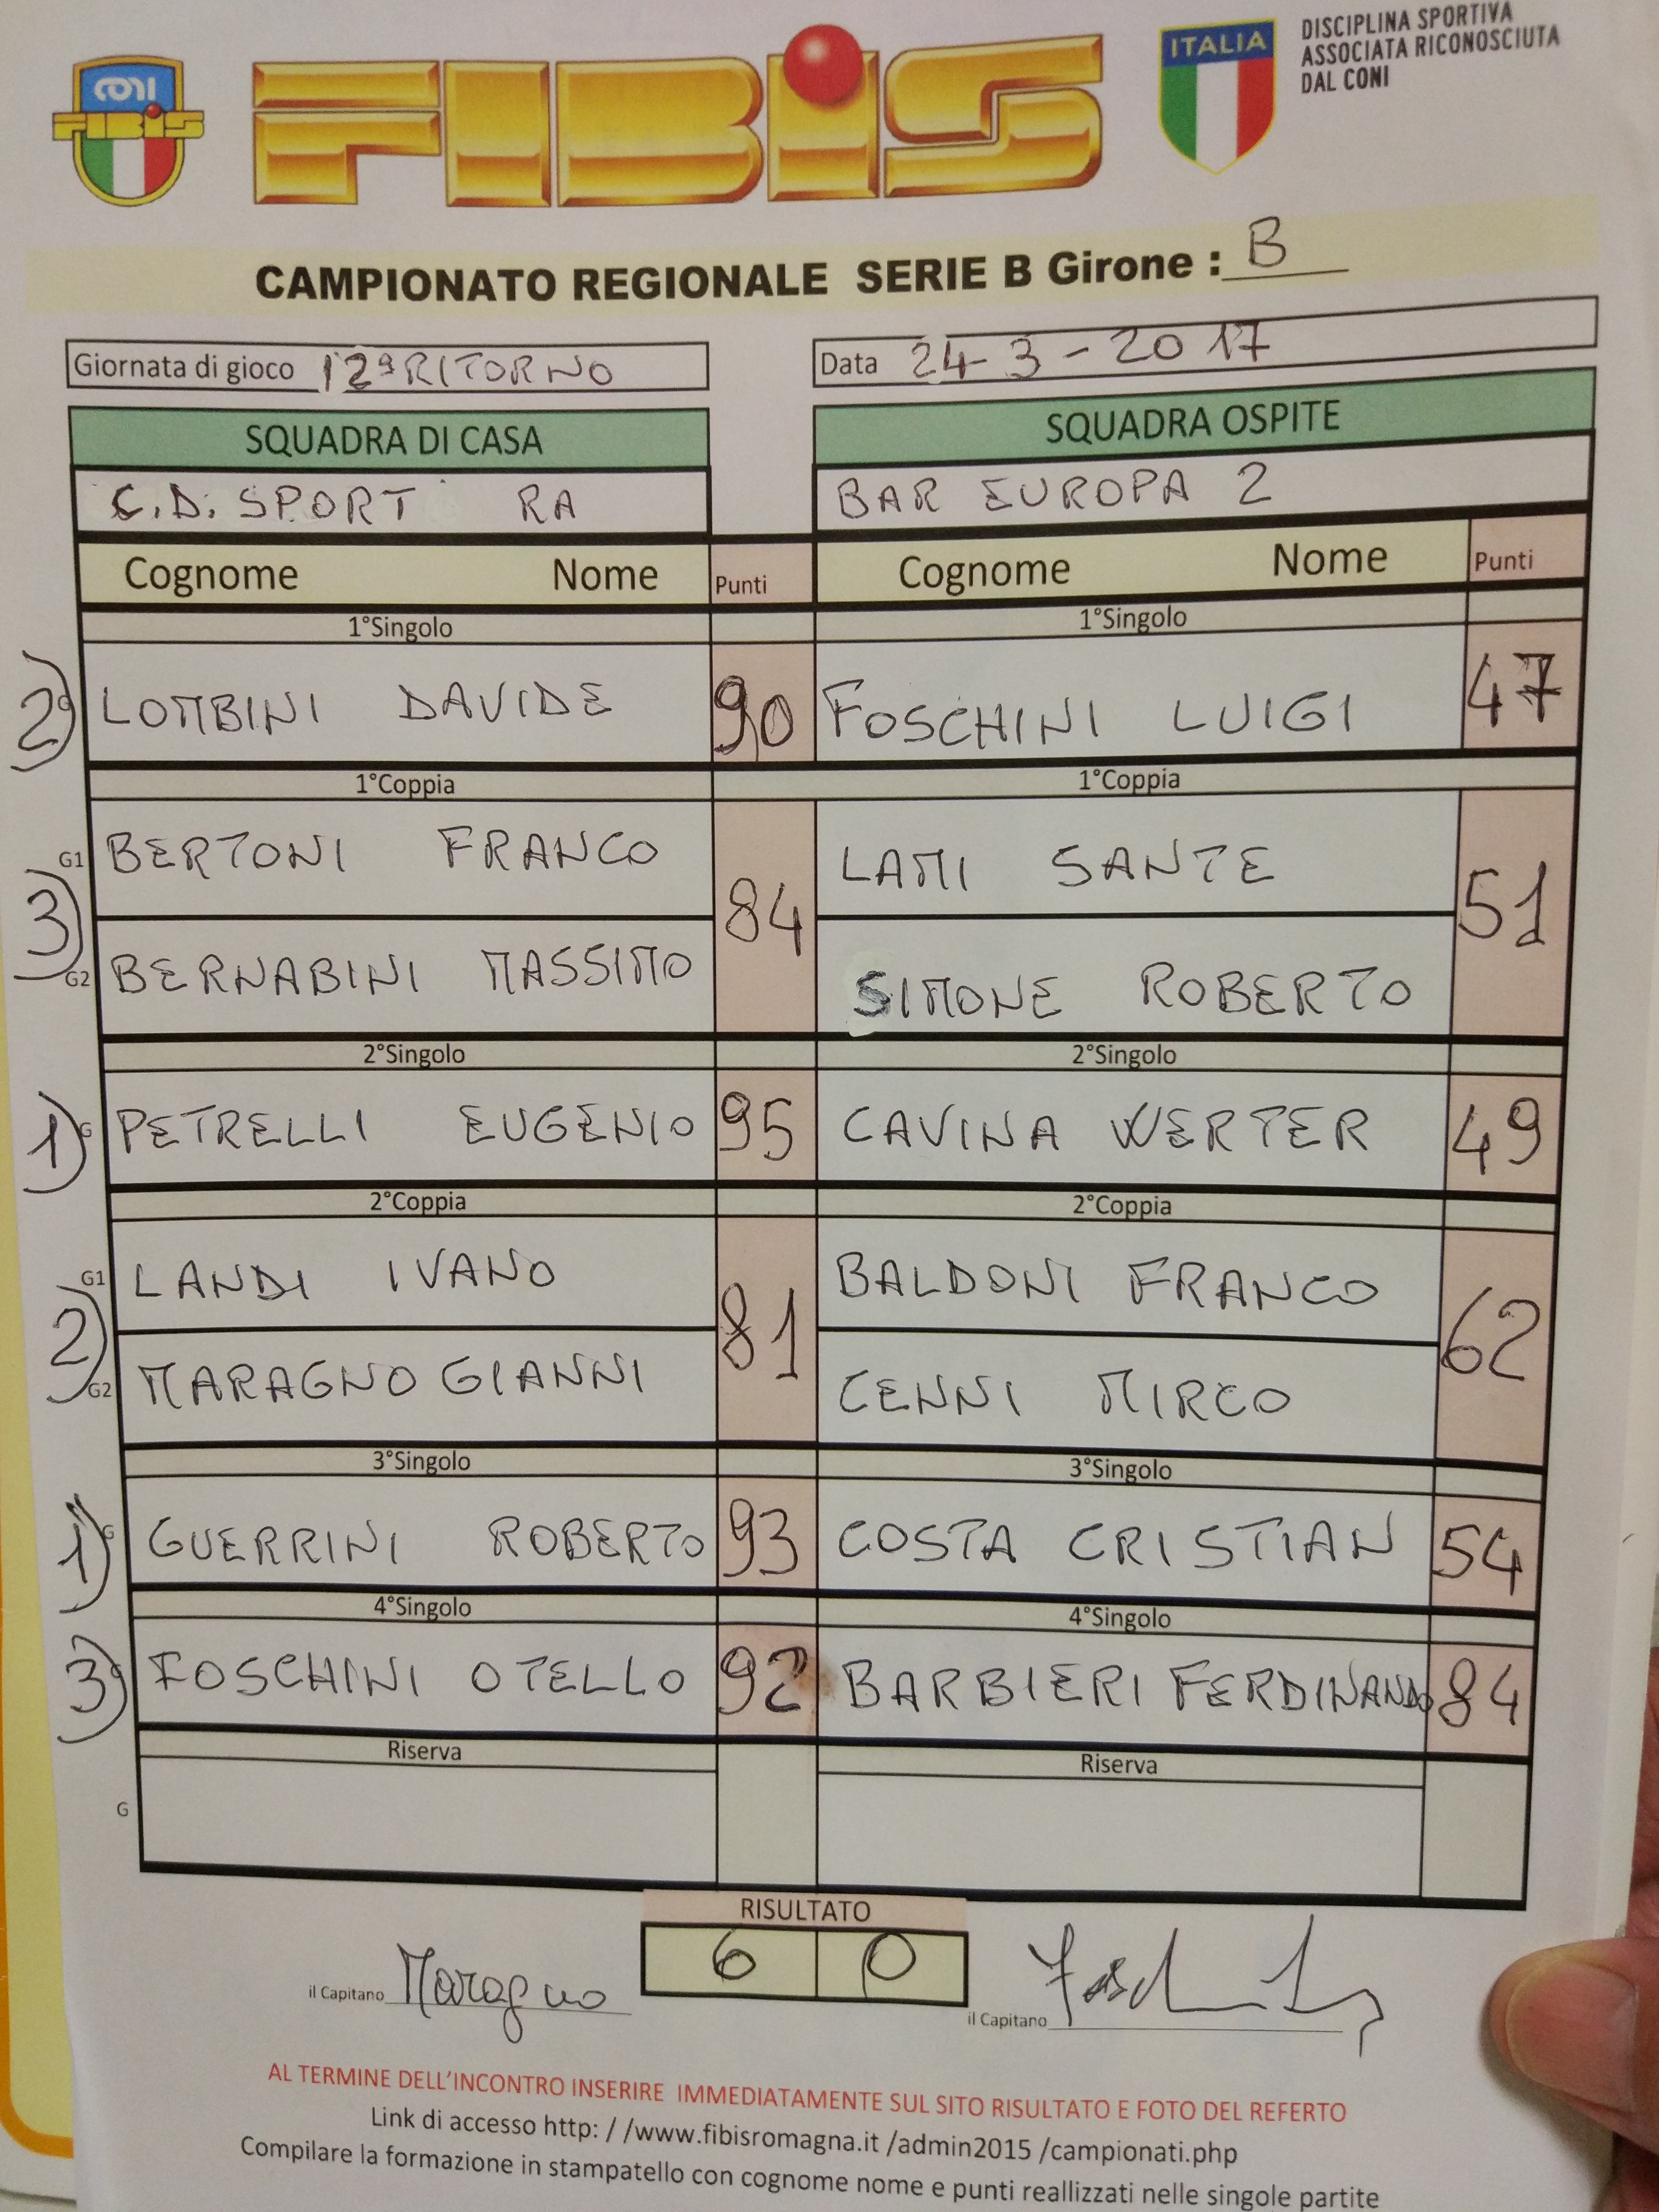 CONI
FIBIS
FIBIS
ITALIA
DISCIPLINA SPORTIVA
ASSOCIATA RICONOSCIUTA
DAL CONI
CAMPIONATO REGIONALE SERIE B Girone : B
Giornata di gioco 12ª RITORNO Data 24-3-2017
SQUADRA DI CASA SQUADRA OSPITE
C.D. SPORT RA BAR EUROPA 2
Cognome Nome Punti Cognome Nome Punti
1°Singolo 1°Singolo
2) G LOMBINI DAVIDE 90 FOSCHINI LUIGI 47
1°Coppia 1°Coppia
G1 BERTONI FRANCO LAMI SANTE
3) 84 51
G2 BERNABINI MASSIMO SIMONE ROBERTO
2°Singolo 2°Singolo
1) G PETRELLI EUGENIO 95 CAVINA WERTER 49
2°Coppia 2°Coppia
G1 LANDI IVANO BALDONI FRANCO
2) 81 62
G2 MARAGNO GIANNI CENNI MIRCO
3°Singolo 3°Singolo
1) G GUERRINI ROBERTO 93 COSTA CRISTIAN 54
4°Singolo 4°Singolo
3) G FOSCHINI OTELLO 92 BARBIERI FERDINANDO 84
Riserva Riserva
G
RISULTATO
6 0
il Capitano Maragno il Capitano
AL TERMINE DELL'INCONTRO INSERIRE IMMEDIATAMENTE SUL SITO RISULTATO E FOTO DEL REFERTO
Link di accesso http: / /www.fibisromagna.it /admin2015 /campionati.php
Compilare la formazione in stampatello con cognome nome e punti reallizzati nelle singole partite